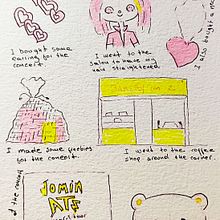 I bought some
earring for the
concert.
I went to the
salon to have my
hair straightened
I also bought a
I made some goodies
for the concert.
I went to the coffee
shop around the corner.
of the concert
JOMIN